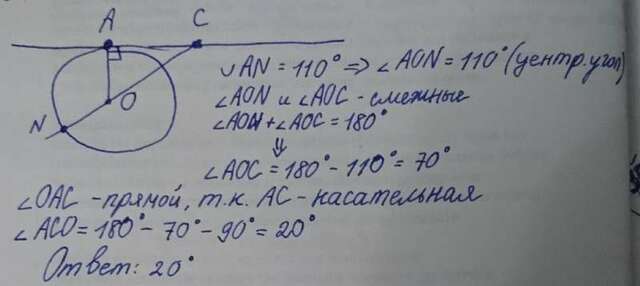 A C
O
N
∪AN = 110° ⇒ ∠AON = 110° (центр. угол)
∠AON и ∠AOC - смежные
∠AON + ∠AOC = 180°
⇓
∠AOC = 180° - 110° = 70°
∠OAC - прямой, т.к. AC - касательная
∠ACO = 180° - 70° - 90° = 20°
Ответ: 20°